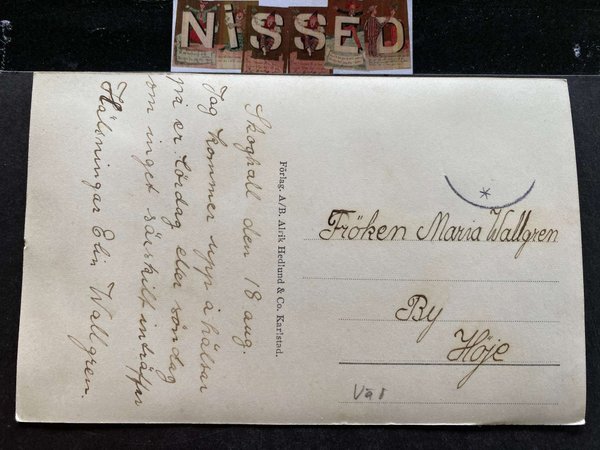 NiSSED
Skoghall den 18 aug.
Jag kommer upp å hälsar
på er lördag eller söndag
om inget särskilt inträffar
Hälsningar Elin Wallgren.
Förlag. A/B. Alrik Hedlund & Co. Karlstad.
Fröken Maria Wallgren
By
Höje